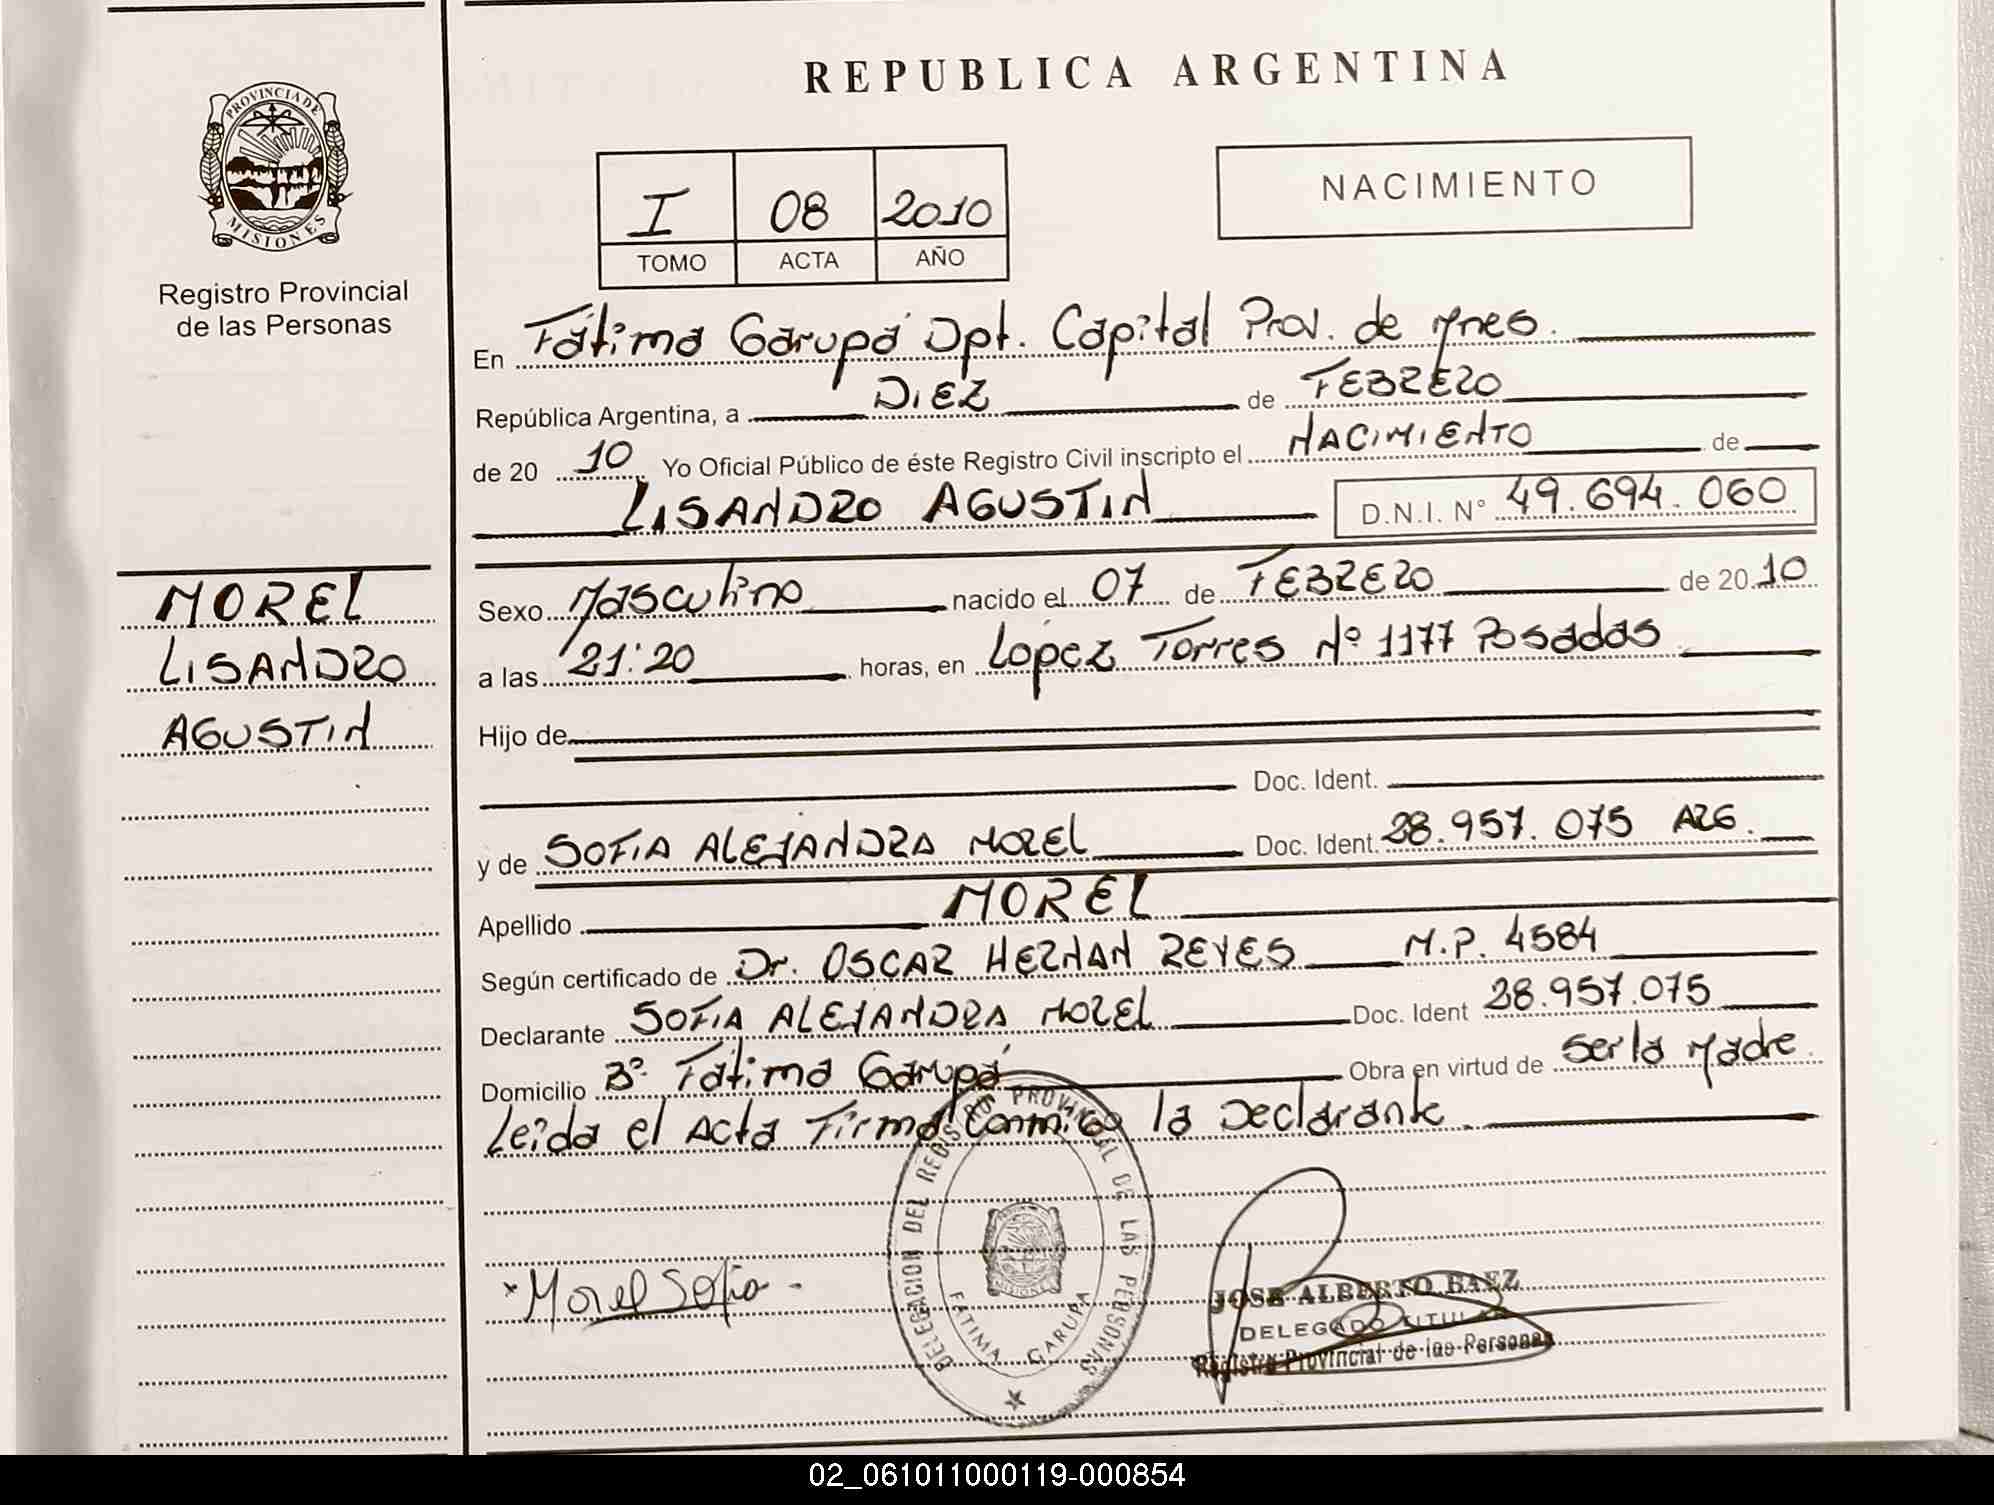 REPUBLICA ARGENTINA
PROVINCIA DE
MISIONES
Registro Provincial
de las Personas
I 08 2010
TOMO ACTA AÑO
NACIMIENTO
En Fátima Garupá Dpt. Capital Prov. de Mnes.
República Argentina, a DIEZ de FEBRERO
de 20 10 Yo Oficial Público de éste Registro Civil inscripto el NACIMIENTO de
LISANDRO AGUSTIN D.N.I. N° 49.694.060
MOREL
LISANDRO
AGUSTIN
Sexo Masculino nacido el 07 de FEBRERO de 20 10
a las 21:20 horas, en López Torres Nº 1177 Posadas
Hijo de
Doc. Ident.
y de SOFIA ALEJANDRA MOREL Doc. Ident. 28.957.075 ARG.
Apellido MOREL
Según certificado de Dr. OSCAR HERNAN REYES M.P. 4584
Declarante SOFIA ALEJANDRA MOREL Doc. Ident 28.957.075
Domicilio Bº Fátima Garupá Obra en virtud de Ser la Madre.
Leída el Acta Firma Conmigo la Declarante.
DELEGACION DEL REGISTRO PROVINCIAL DE LAS PERSONAS
MISIONES
FATIMA GARUPA
Morel Sofia
JOSE ALBERTO BAEZ
DELEGADO TITULAR
Registro Provincial de las Personas
02_061011000119-000854